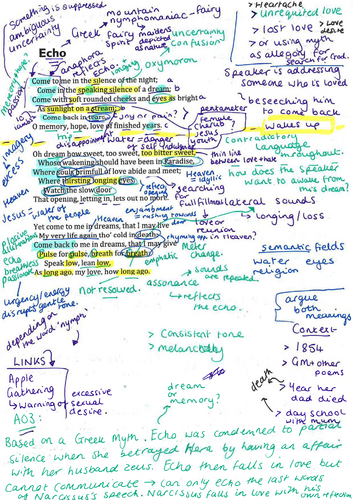 something is suppressed
ambiguous
uncertainty
mountain
nymphomaniac - fairy
Greek fairy maidens
spirit depicted
as nature
uncertainty
confusion
> Heartache
> unrequited love
> lost love > Love
desire
> or using myth
as allegory for
search for God.
Speaker is addressing
someone who is loved
Echo
anaphora
oxymoron
Come to me in the silence of the night; a
Come in the speaking silence of a dream; b
Come with soft rounded cheeks and eyes as bright a
As sunlight on a stream;
Come back in tears, Joy or pain?
O memory, hope, love of finished years.
pentameter
female
cherub
Jesus
youth
beseeching him
to come back
wakes up
imagery
of
excess
disappointment
water - danger
of self indulgence
contradictory
language
throughout.
Oh dream how sweet, too sweet, too bitter sweet,
Whose wakening should have been in Paradise,
Where souls brimfull of love abide and meet;
Where thirsting longing eyes
Watch the slow door
That opening, letting in, lets out no more.
thin line
between love + hate
how does the speaker
want to awake from
this dream?
Heaven
Jesus - water of
the people
Heaven
searching
for
fulfillment
lateral sounds
longing/loss
enjambment
rushing towards
love or
reunion
in Heaven?
Yet come to me in dreams, that I may live
My very life again tho' cold in death:
Come back to me in dreams, that I may give
Pulse for pulse, breath for breath:
Speak low, lean low,
As long ago, my love, how long ago.
plosive
alliteration
echo
breathless
passionate
metre
change
emphatic
semantic fields
water eyes
religion
urgency/energy
disrupts gentle
tone.
not resolved.
assonance
→ reflects
the echo.
→ sounds
are repeated
argue
both
meanings
depending on
the word 'nymph'
> Consistent tone
> melancholy
Context
> 1854
> GM + other
poems
> Year her
dad died
> day school
with mum
death
LINKS
Apple
Gathering
→ Warning of
excessive
sexual
desire.
dream
or
memory?
AO3:
Based on a Greek Myth. Echo was condemned to partial
silence when she betrayed Hera by having an affair
with her husband zeus. Echo then falls in love but
cannot communicate → can only echo the last words
of Narcissus's speech. Narcissus falls in love with his
own reflection